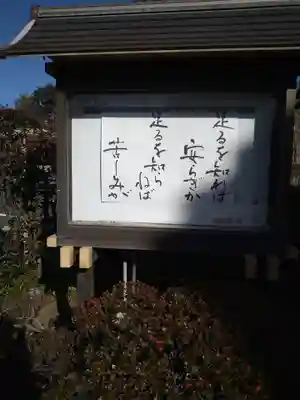 足るを知れば
安らぎが
足るを知ら
ねば
苦しみが